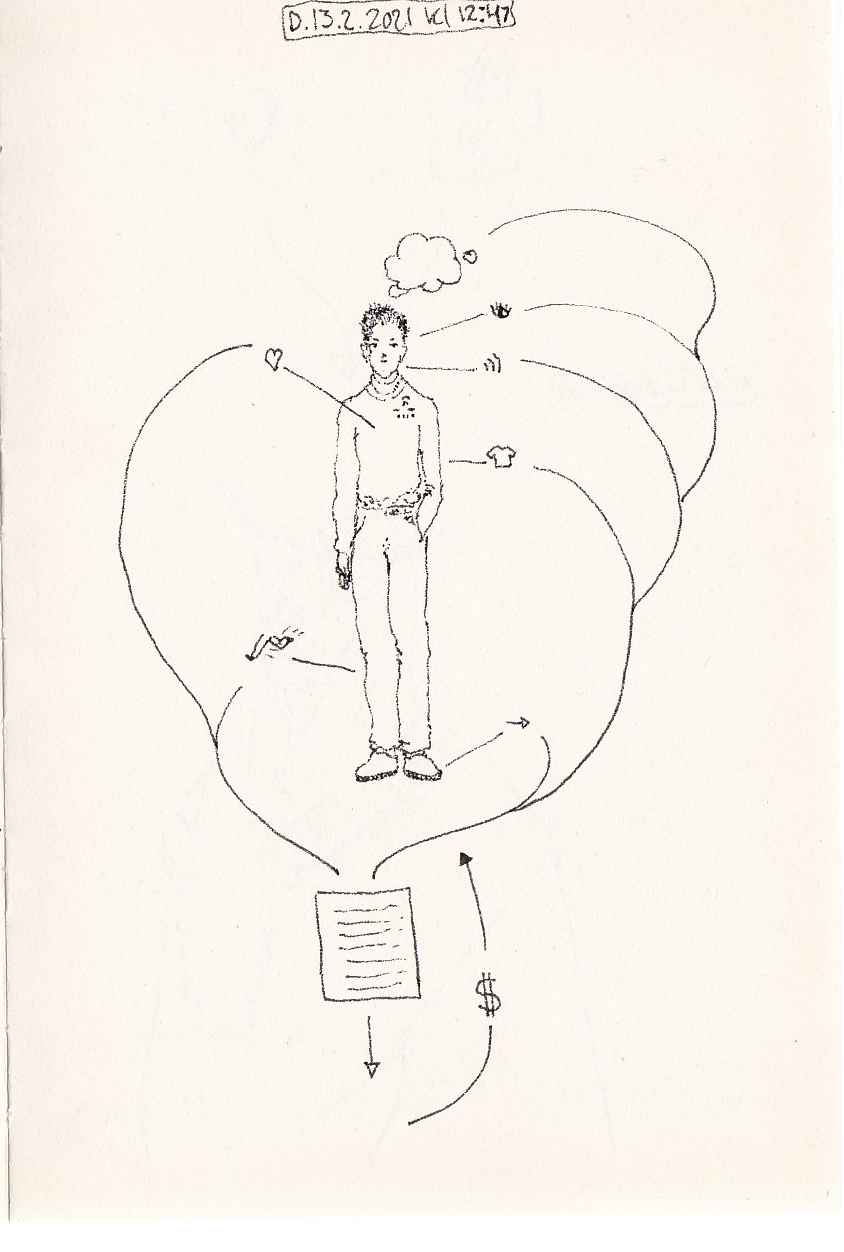 D.13.2.2021 kl 12:47
$